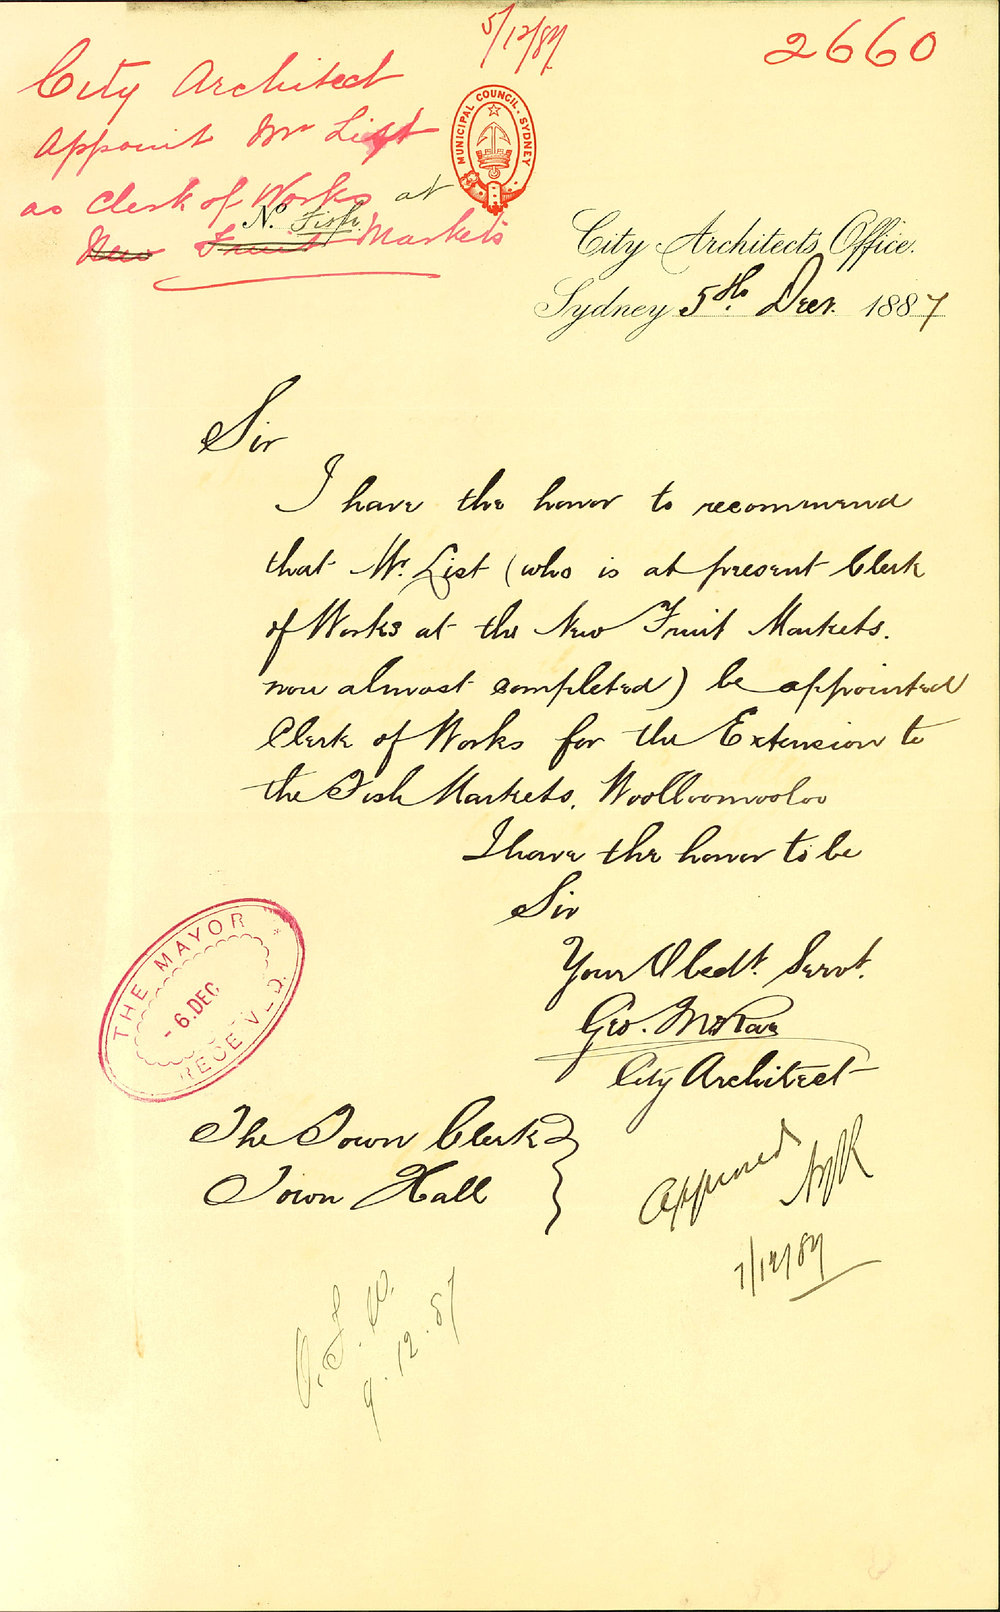 5/12/87
2660
City Architect
Appoint Mr List
as Clerk of Works at
No. Fish
New Fruit Markets
MUNICIPAL COUNCIL. SYDNEY
City Architects Office.
Sydney 5th Decr. 1887
Sir
I have the honor to recommend
that Mr. List (who is at present Clerk
of Works at the New Fruit Markets.
now almost completed) be appointed
Clerk of Works for the Extension to
the Fish Markets, Woolloomooloo
I have the honor to be
Sir
Your Obedt. Servt.
Geo. McRae
City Architect
THE MAYOR
- 6. DEC
RECEIV
The Town Clerk
Town Hall
Approved
7/12/87
9.12.87